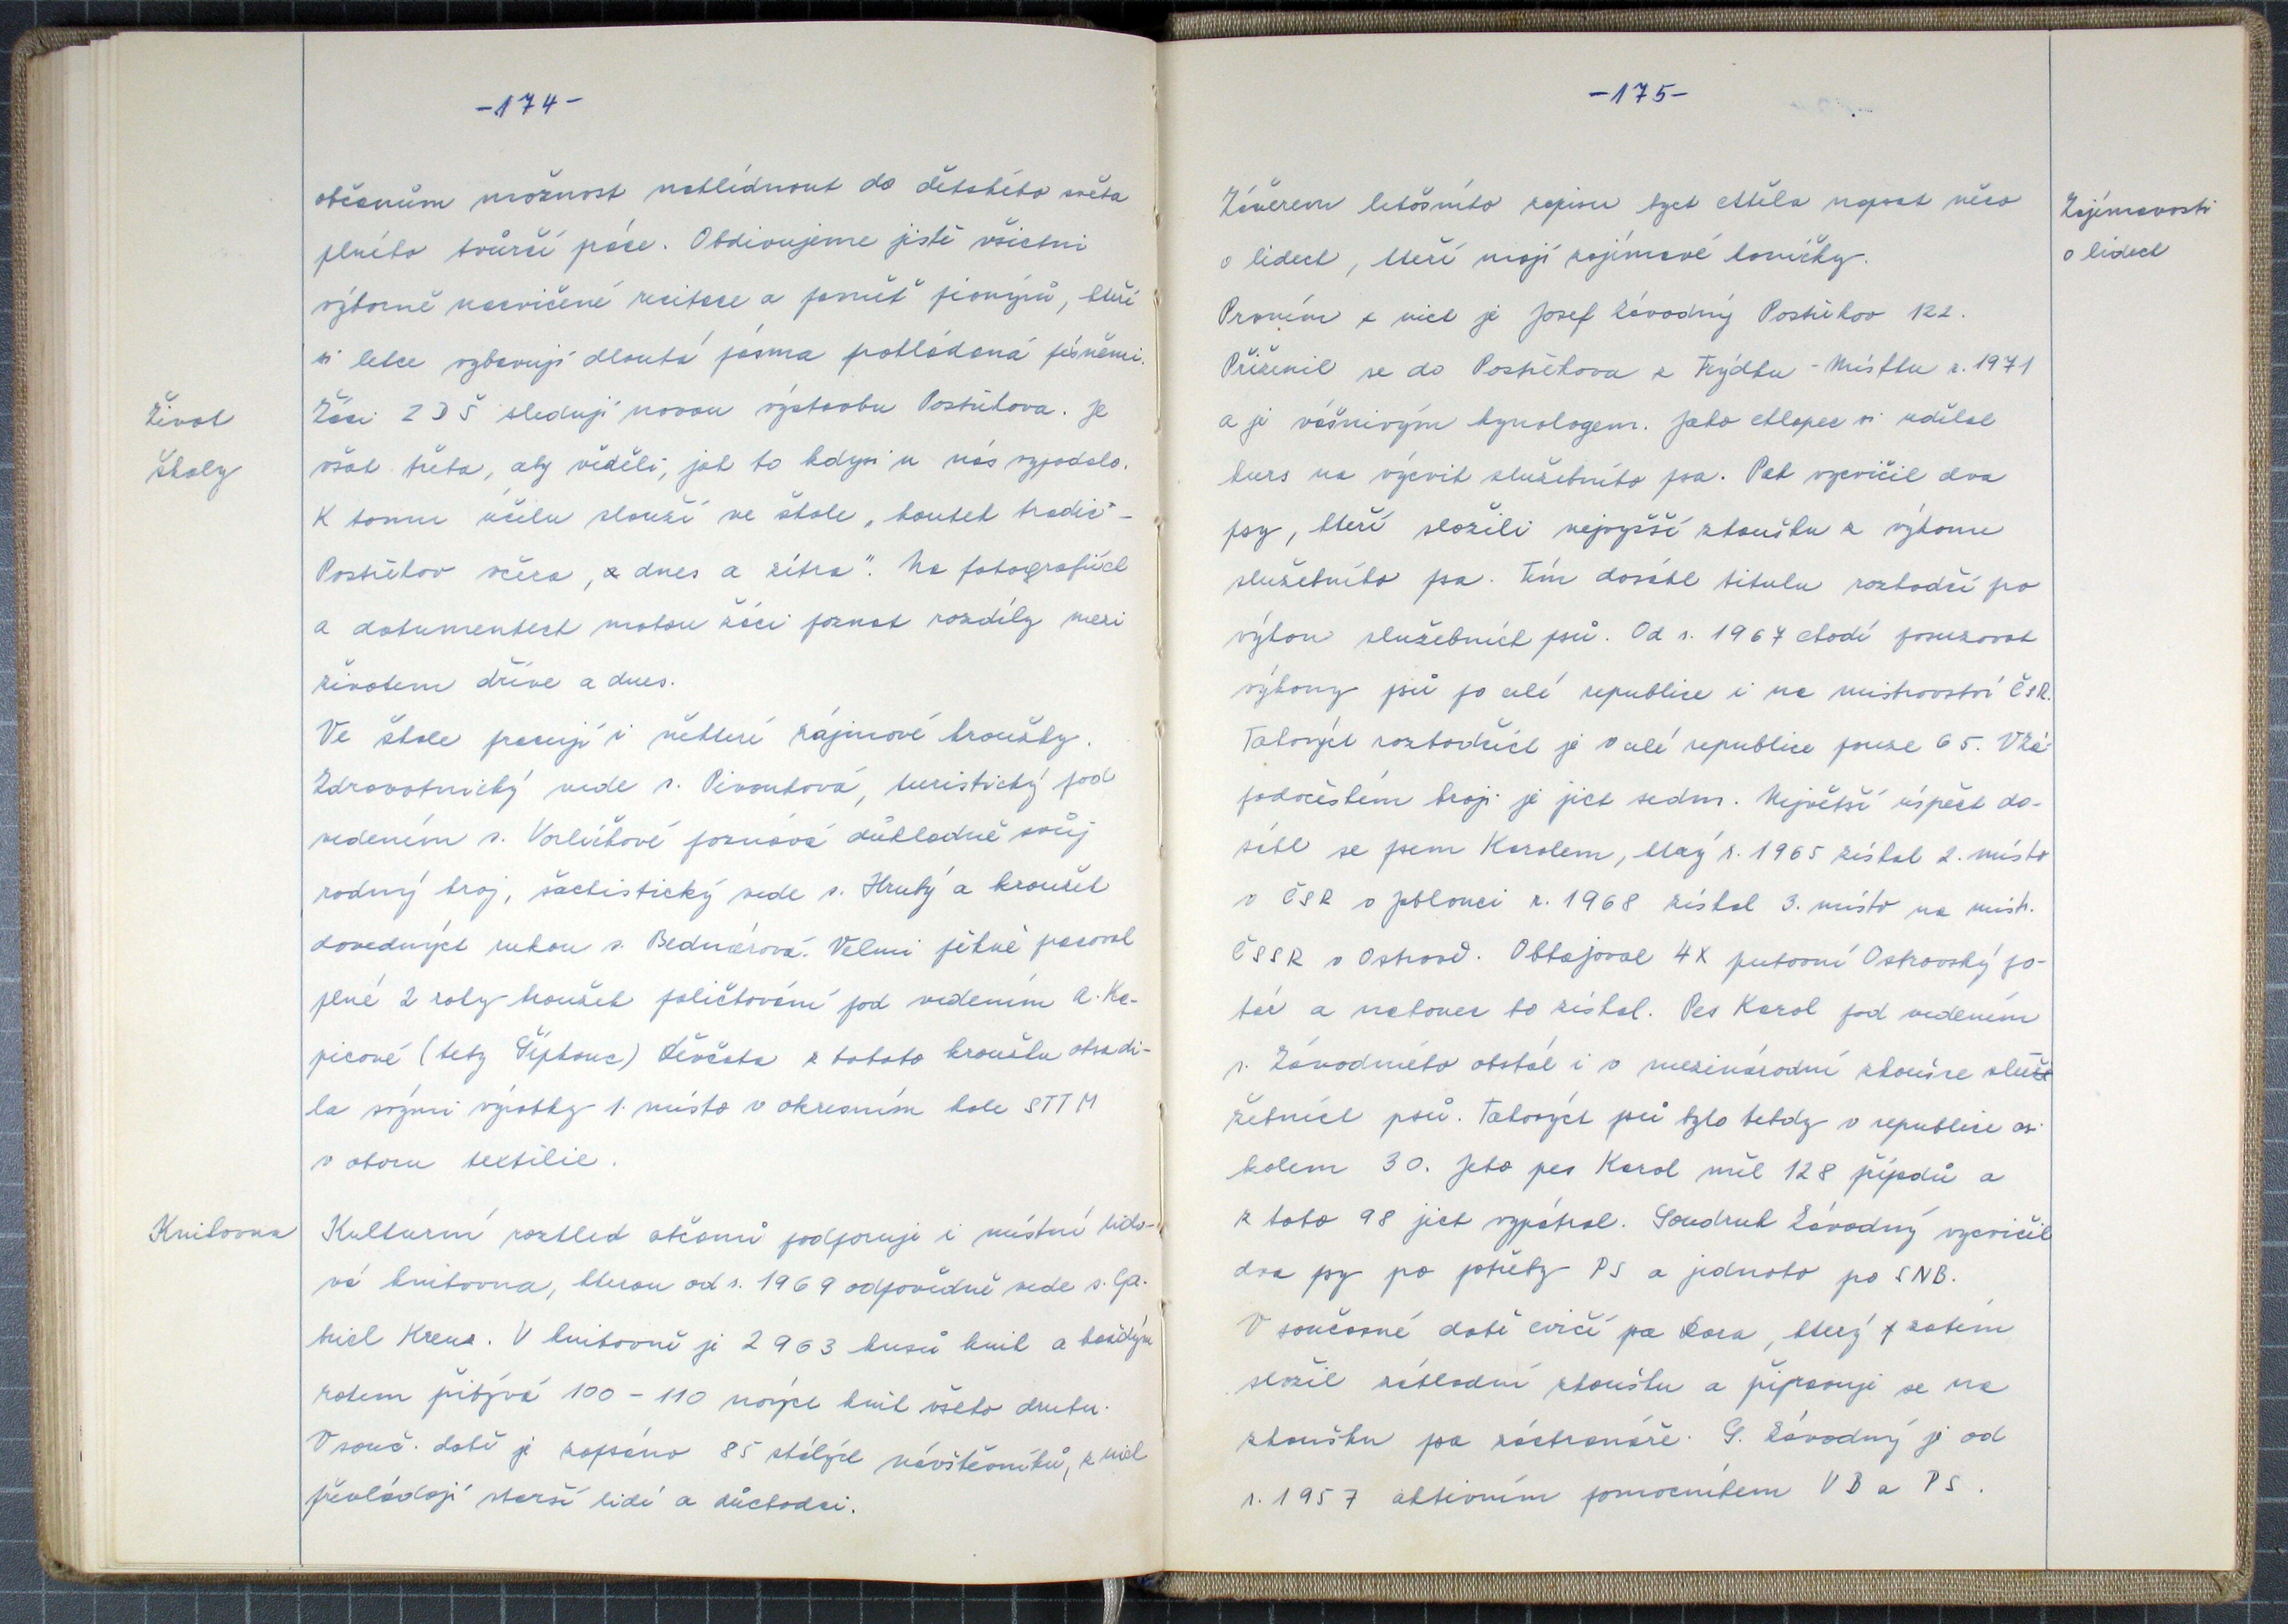 -174-
občanům možnost nahlédnout do dětského světa
plného tvůrčí práce. Obdivujeme jistě všichni
výborně nacvičené recitace a paměť pionýrů, kteří
si lehce vybavují dlouhá pásma prokládaná písněmi.
Život
školy
Žáci ZDŠ sledují novou výstavbu Postřekova. Je
však třeba, aby věděli, jak to kdysi u nás vypadalo.
K tomu účelu slouží ve škole „koutek tradic -
Postřekov včera, dnes a zítra“. Na fotografiích
a dokumentech mohou žáci poznat rozdíly mezi
životem dříve a dnes.
Ve škole pracují i některé zájmové kroužky.
Zdravotnický vede s. Pivoňková, turistický pod
vedením s. Vorlíčkové poznává důkladně svůj
rodný kraj, šachistický vede s. Hrubý a kroužek
dovedných rukou s. Bednářová. Velmi pěkně pracoval
plné 2 roky kroužek paličkování pod vedením A. Ka-
picové (tety Šípkouc) Děvčata z tohoto kroužku obsadi-
la svými výrobky 1. místo v okresním kole STTM
v oboru textilie.
Knihovna
Kulturní rozhled občanů podporuje i místní lido-
vá knihovna, kterou od r. 1969 odpovědně vede s. Ga-
briel Kreuz. V knihovně je 2963 kusů knih a každým
rokem přibývá 100 - 110 nových knih všeho druhu.
V souč. době je zapsáno 85 stálých návštěvníků, z nich
převládají starší lidé a důchodci.
-175-
Zajímavosti
o lidech
Závěrem letošního zápisu bych chtěla napsat něco
o lidech, kteří mají zajímavé koníčky.
Prvním z nich je Josef Závodný Postřekov 122.
Přiženil se do Postřekova z Frýdku - Místku r. 1971
a je vášnivým kynologem. Jako chlapec si udělal
kurs na výcvik služebního psa. Pak vycvičil dva
psy, kteří složili nejvyšší zkoušku z výkonu
služebního psa. Tím dosáhl titulu rozhodčí pro
výkon služebních psů. Od r. 1967 chodí posuzovat
výkony psů po celé republice i na mistrovství ČSR.
Takových rozhodčích je v celé republice pouze 65. V Zá-
padočeském kraji je jich sedm. Největší úspěch do-
sáhl se psem Karolem, který r. 1965 získal 2. místo
v ČSR v Jablonci r. 1968 získal 3. místo na mistr.
ČSSR v Ostravě. Obhajoval 4x putovní Ostravský po-
hár a nakonec ho získal. Pes Karol pod vedením
s. Závodného obstál i v mezinárodní zkoušce slu-
žebních psů. Takových psů bylo tehdy v republice asi
kolem 30. Jeho pes Karol měl 128 případů a
z toho 98 jich vypátral. Soudruh Závodný vycvičil
dva psy pro potřeby PS a jednoho pro SNB.
V současné době cvičí psa Dora, který zatím
složil základní zkoušku a připravuje se na
zkoušku psa záchranáře. S. Závodný je od
r. 1957 aktivním pomocníkem VB a PS.